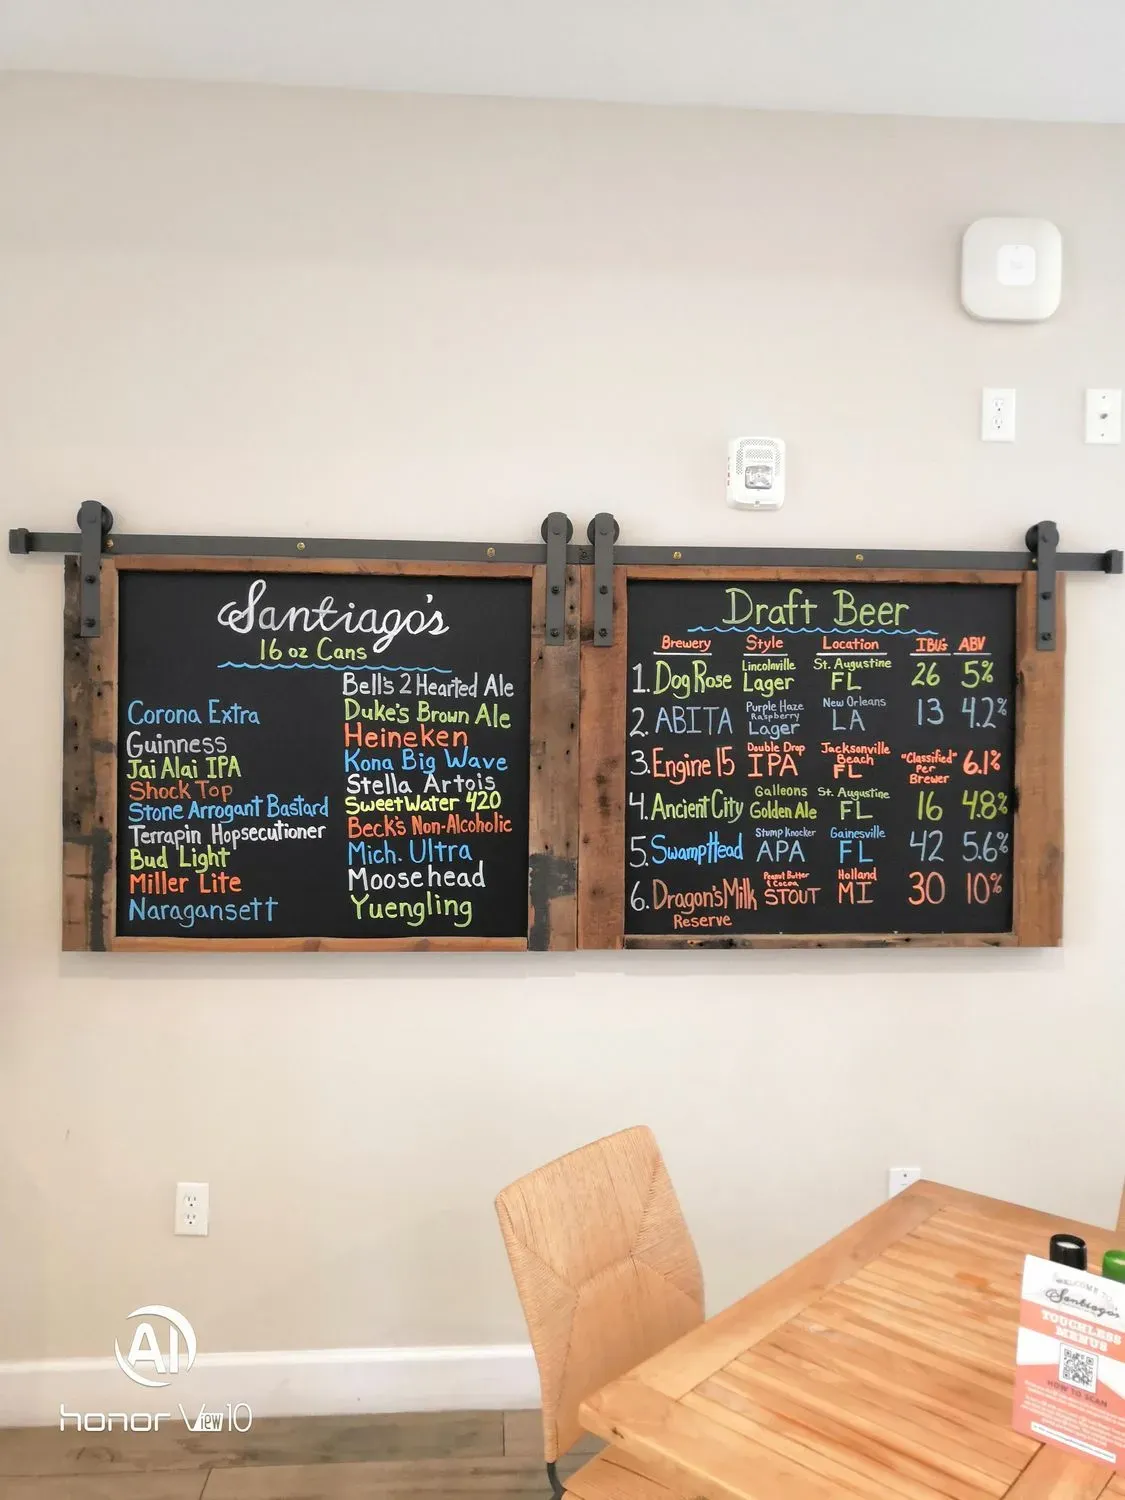 Santiago's
16 oz Cans
Corona Extra
Guinness
Jai Alai IPA
Shock Top
Stone Arrogant Bastard
Terrapin Hopsecutioner
Bud Light
Miller Lite
Naragansett
Bell's 2 Hearted Ale
Duke's Brown Ale
Heineken
Kona Big Wave
Stella Artois
SweetWater 420
Beck's Non-Alcoholic
Mich. Ultra
Moosehead
Yuengling
Draft Beer
Brewery Style Location IBU's ABV
1. Dog Rose Lincolnville Lager St. Augustine FL 26 5%
2. ABITA Purple Haze Raspberry Lager New Orleans LA 13 4.2%
3. Engine 15 Double Drop IPA Jacksonville Beach FL "Classified" Per Brewer 6.1%
4. Ancient City Galleons Golden Ale St. Augustine FL 16 4.8%
5. Swamp Head Stump Knocker APA Gainesville FL 42 5.6%
6. Dragon's Milk Reserve Peanut Butter & Cocoa STOUT Holland MI 30 10%
Santiago's
TOUCHLESS
MENUS
HOW TO SCAN
AI
honor View10